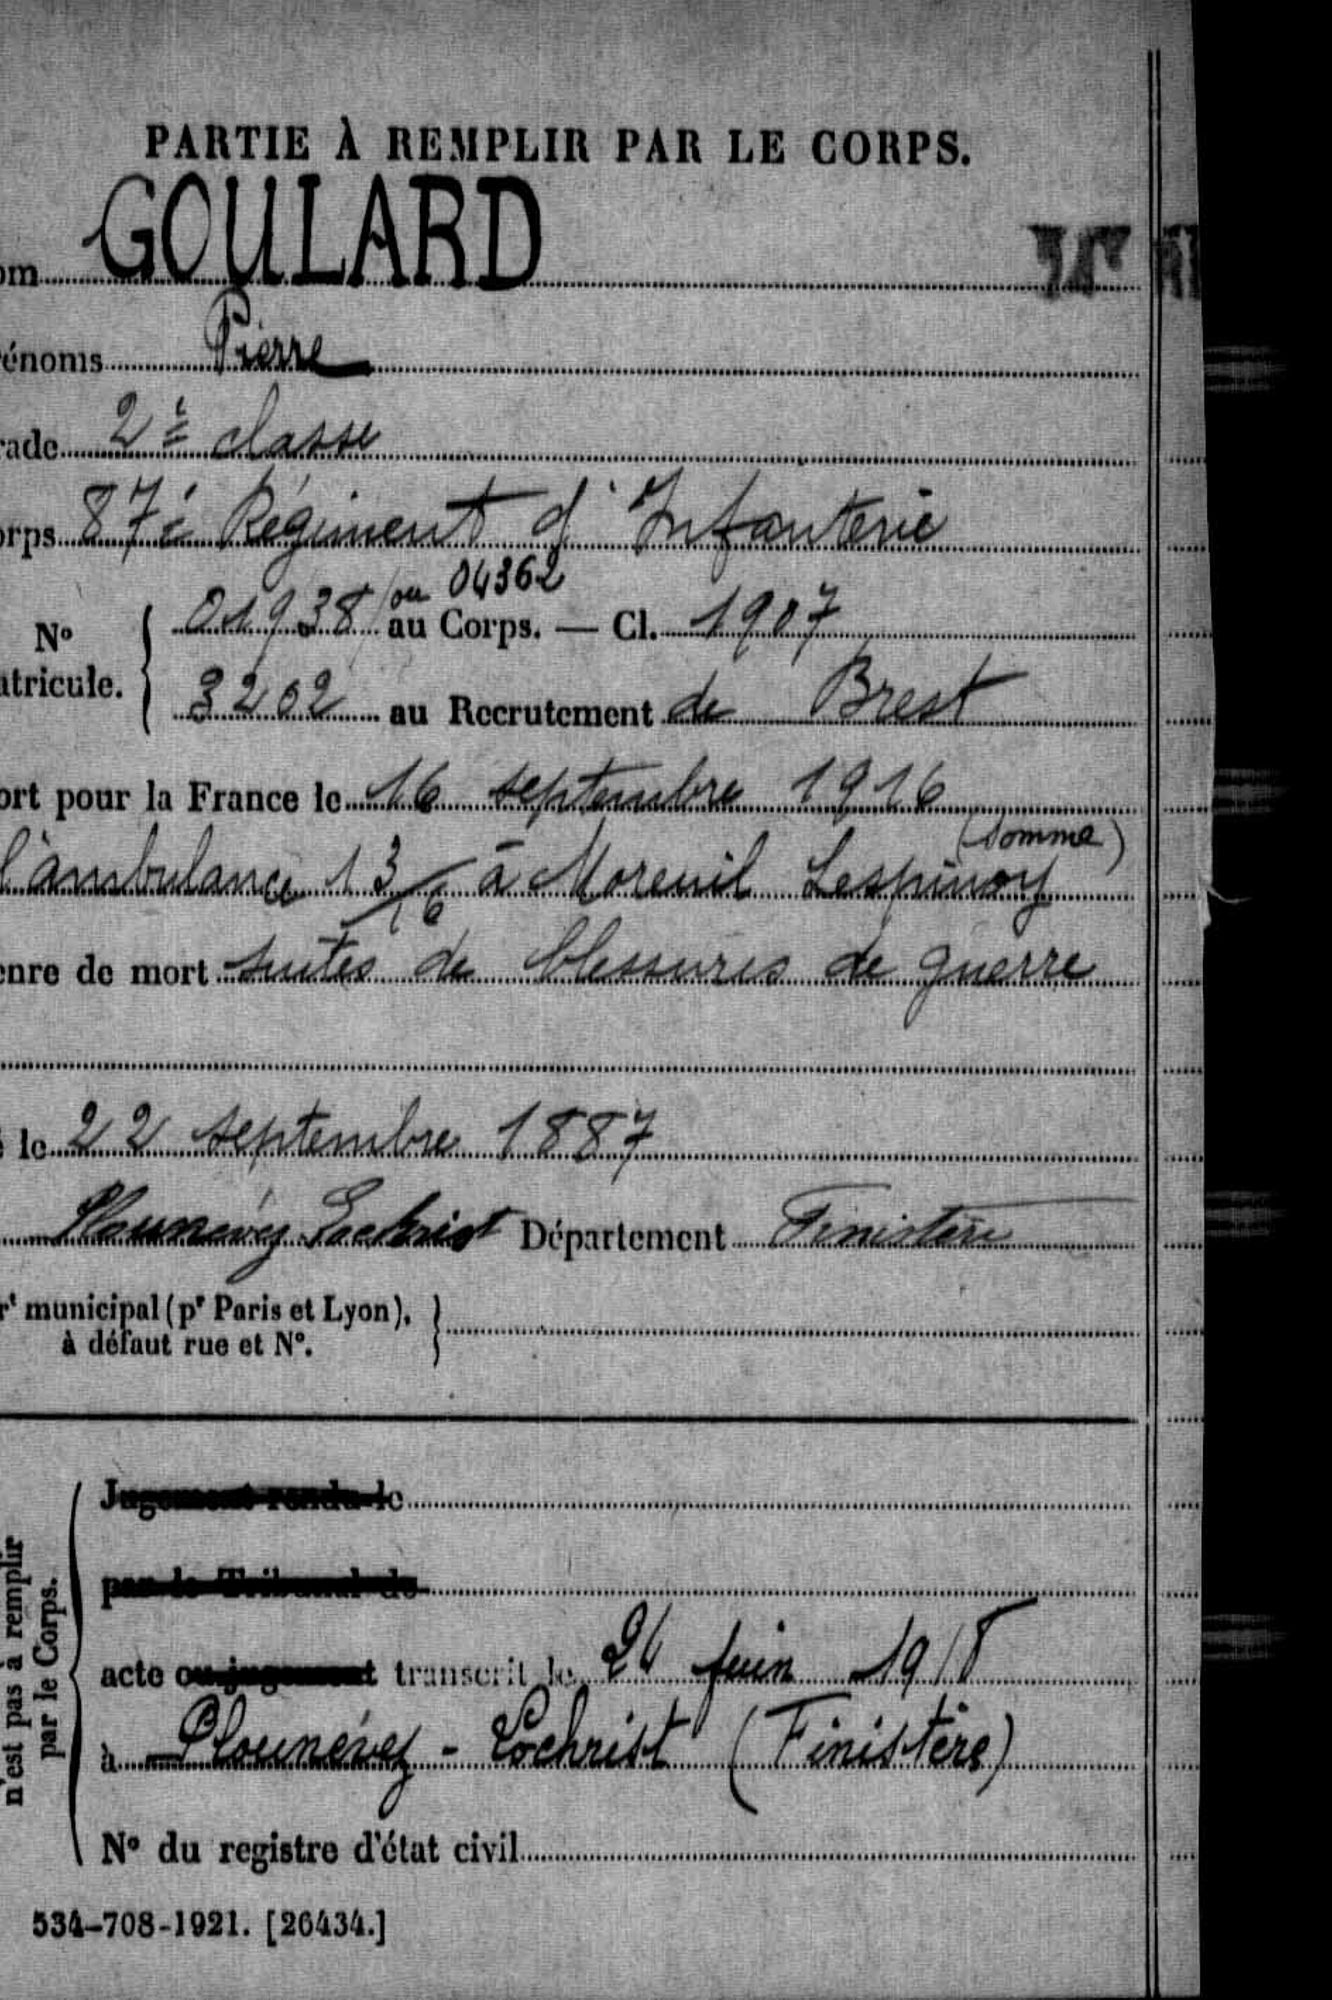 PARTIE À REMPLIR PAR LE CORPS.
om GOULARD
énoms Pierre
rade 2e classe
orps 87e Régiment d'Infanterie
ou 04362
N° 01938 au Corps. — Cl. 1907
atricule. 3202 au Recrutement de Brest
ort pour la France le 16 septembre 1916
(Somme)
l'ambulance 13/16 à Moreuil Lespinoy
enre de mort suites de blessures de guerre
le 22 septembre 1887
Plounevez Lochrist Département Finistère
rt municipal (pr Paris et Lyon),
à défaut rue et N°.
Jugement rendu le
par le Tribunal de
acte ou jugement transcrit le 24 Juin 1918
à Plounévez - Lochrist (Finistère)
N° du registre d'état civil
n'est pas à remplir
par le Corps.
534-708-1921. [26434.]